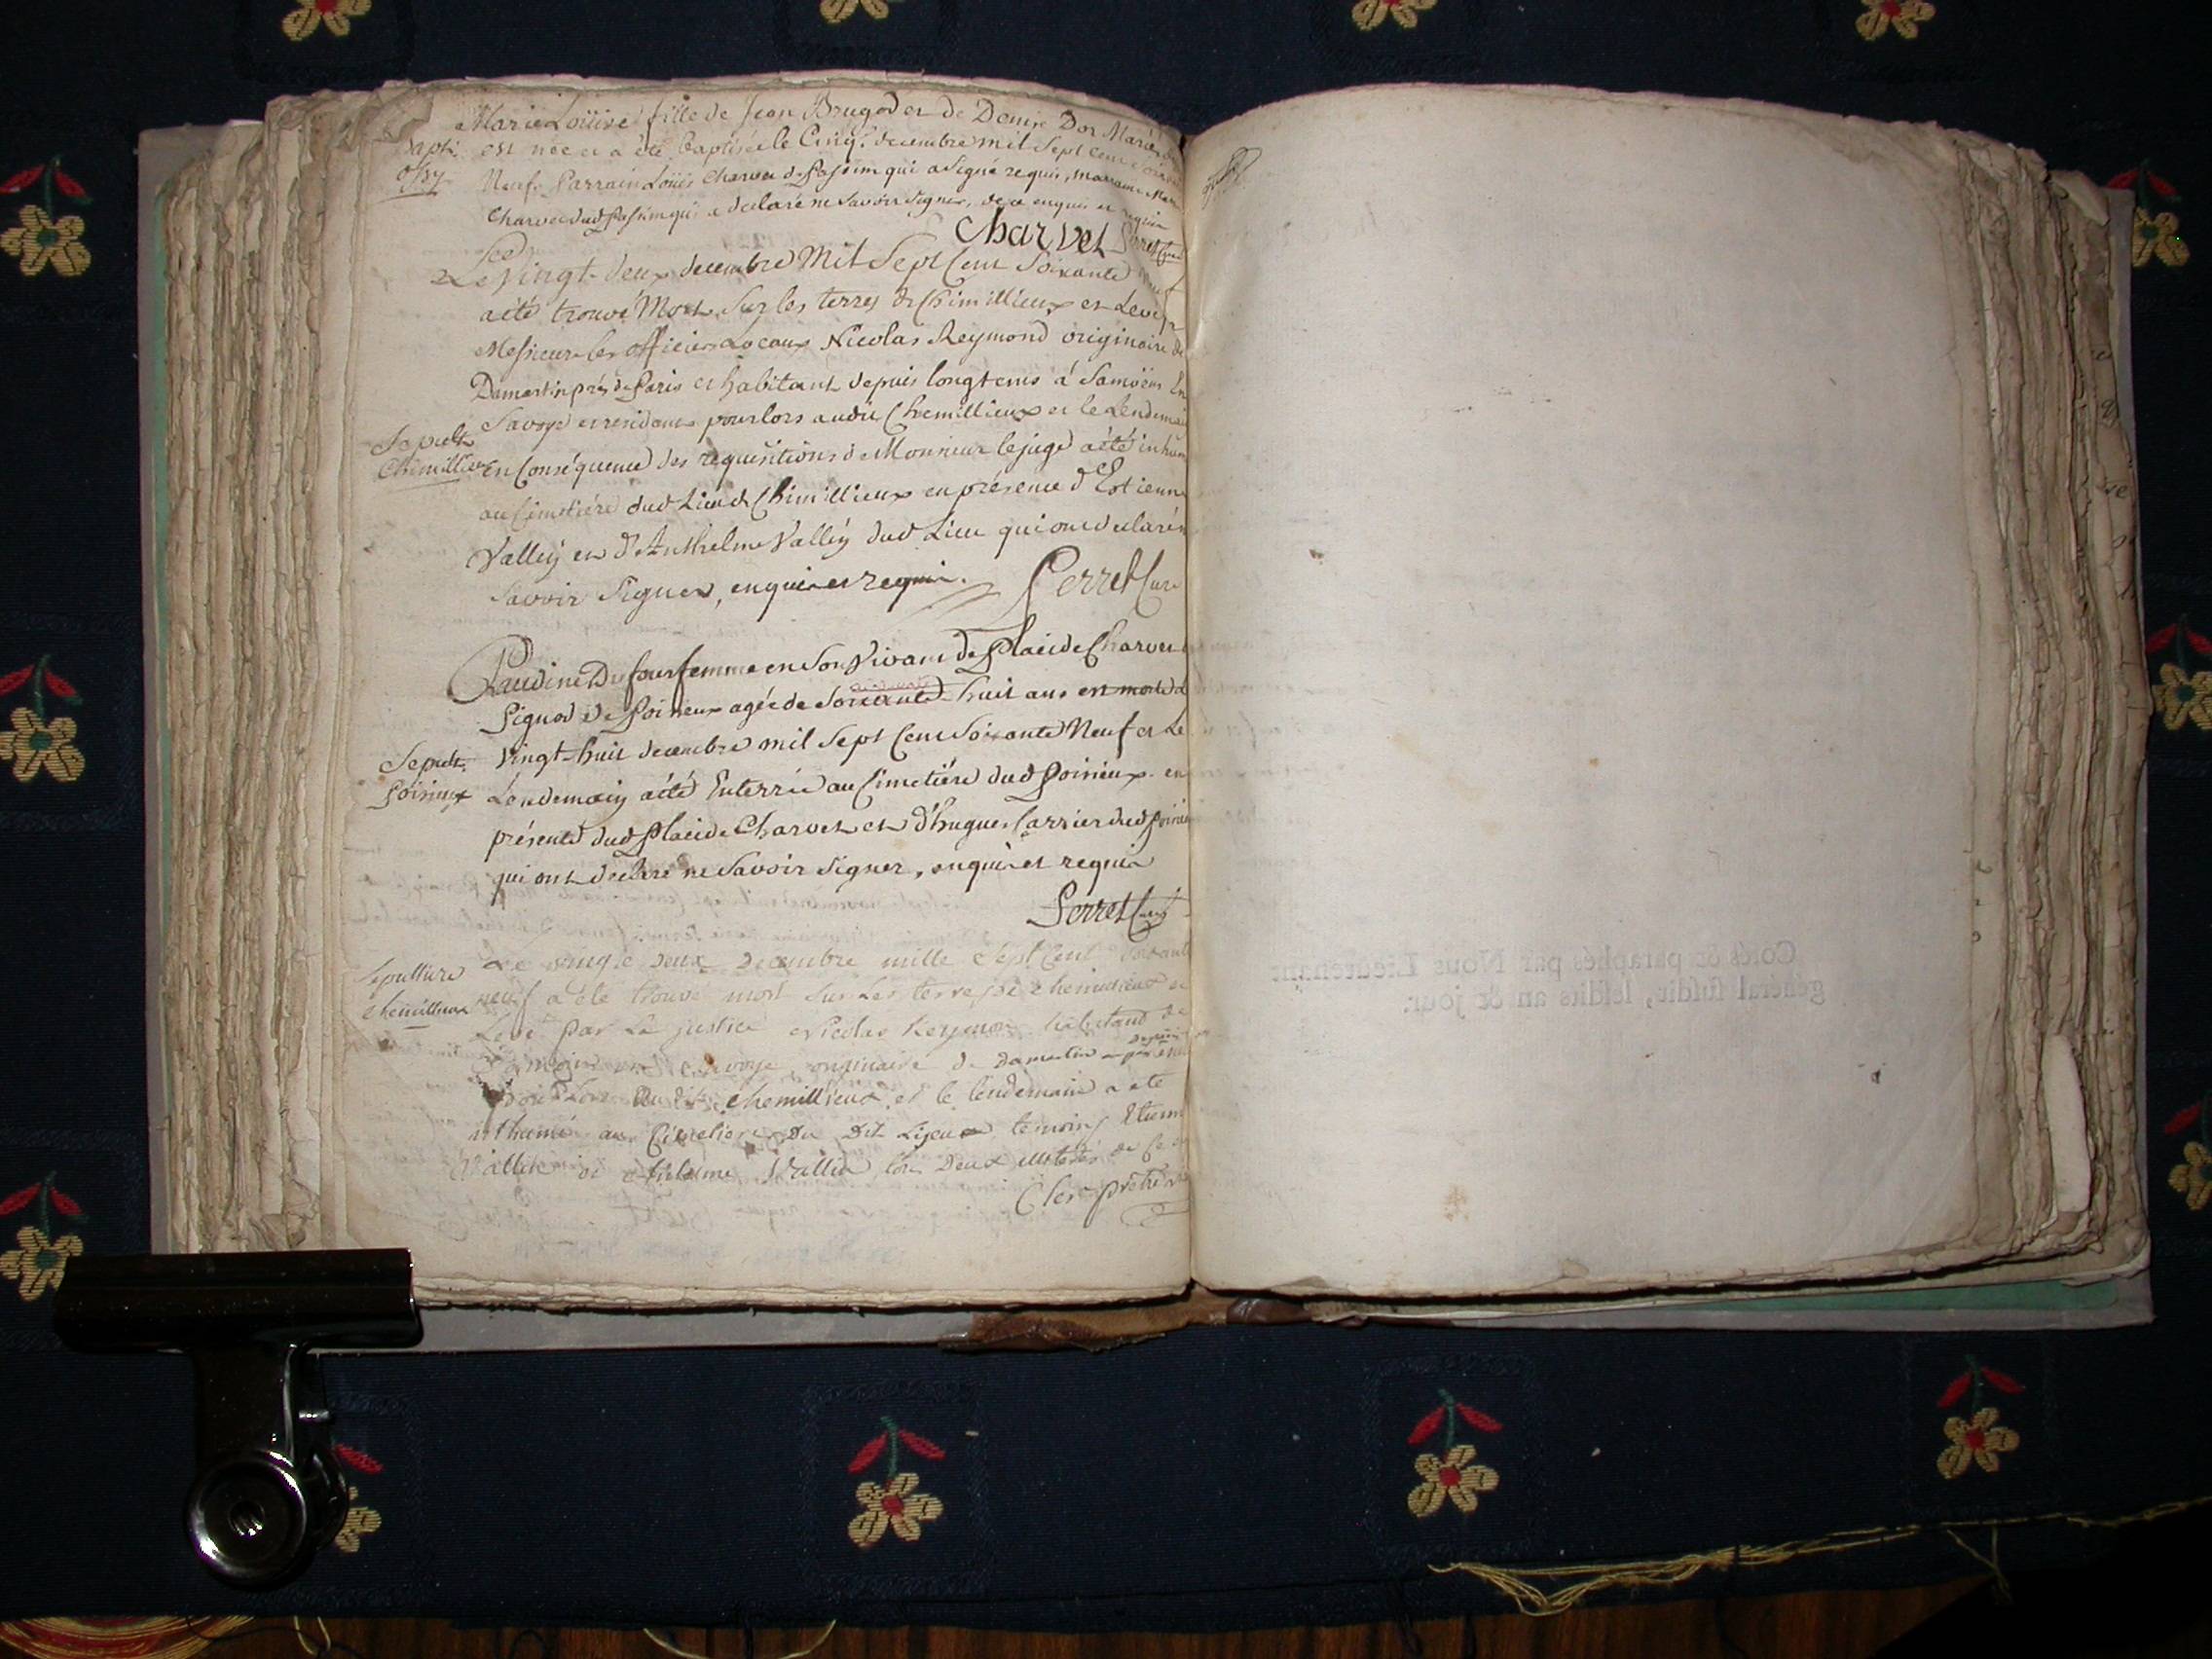 Marie Loüise fille de Jean Brugod et de Denise Dor Mariés
Bapt. est née et a été baptisée le Cinq. decembre mil Sept Cent Soixante
Neuf. Parrain Loüis Charvet de qui a Signé requis, marraine
Charvet dud qui a declaré ne Savoir Signer, de ce enquis et requise
Charvet Perret Curé
Le Vingt-deux decembre Mil Sept Cent Soixante neuf
a été trouvé Mort Sur les terres de Chimillieux et Levé
Messieurs les officiers Locaux Nicolas Reymond originaire de
Damartin près de Paris et habitant depuis longtems á Samöens En
Sepult. Savoye et residant pour lors audit Chemillieux et le Lendemain
Chimillieux En Conséquence des requisitions de Monsieur le juge a été inhum
au Cimetiére dud Lieu de Chimillieux en présence d'Estienne
Valley et d'Anthelme Valley dud Lieu qui ont declaré n
Savoir Signer, enquis et requis. Perret Curé
Claudine Dufour femme en Son Vivant de Placide Charvet
Pignod de Poirieux agée de Soixante-huit ans est morte
Sepult. Vingt-huit decembre mil Sept Cent Soixante Neuf et Le
Poirieux Lendemain a été Enterrée au Cimetiére dud Poirieux en
présence dud Placide Charvet et d'hugues Carrier dud Poirieux
qui ont déclaré ne Savoir Signer, enquis et requis
Perret Curé
Sepulture Le vingt deux decembre mille Sept Cent Soixante
Chemillieux neuf a été trouvé mort Sur Les terres de chemillieux et
Levé par La justice Nicolas Reymon habitand de
en Savoye originaire de Damartin
pour Lors Audit Chemillieux et le lendemain a eté
inthumé au Cimetiere Du Dit Lieu temoins Etienne
Vallet et Anthelme Vallet tous Deux de ce
Clerc prêtre
Cotés & paraphés par Nous Lieutenant
général susdit, lesdits an & jour.